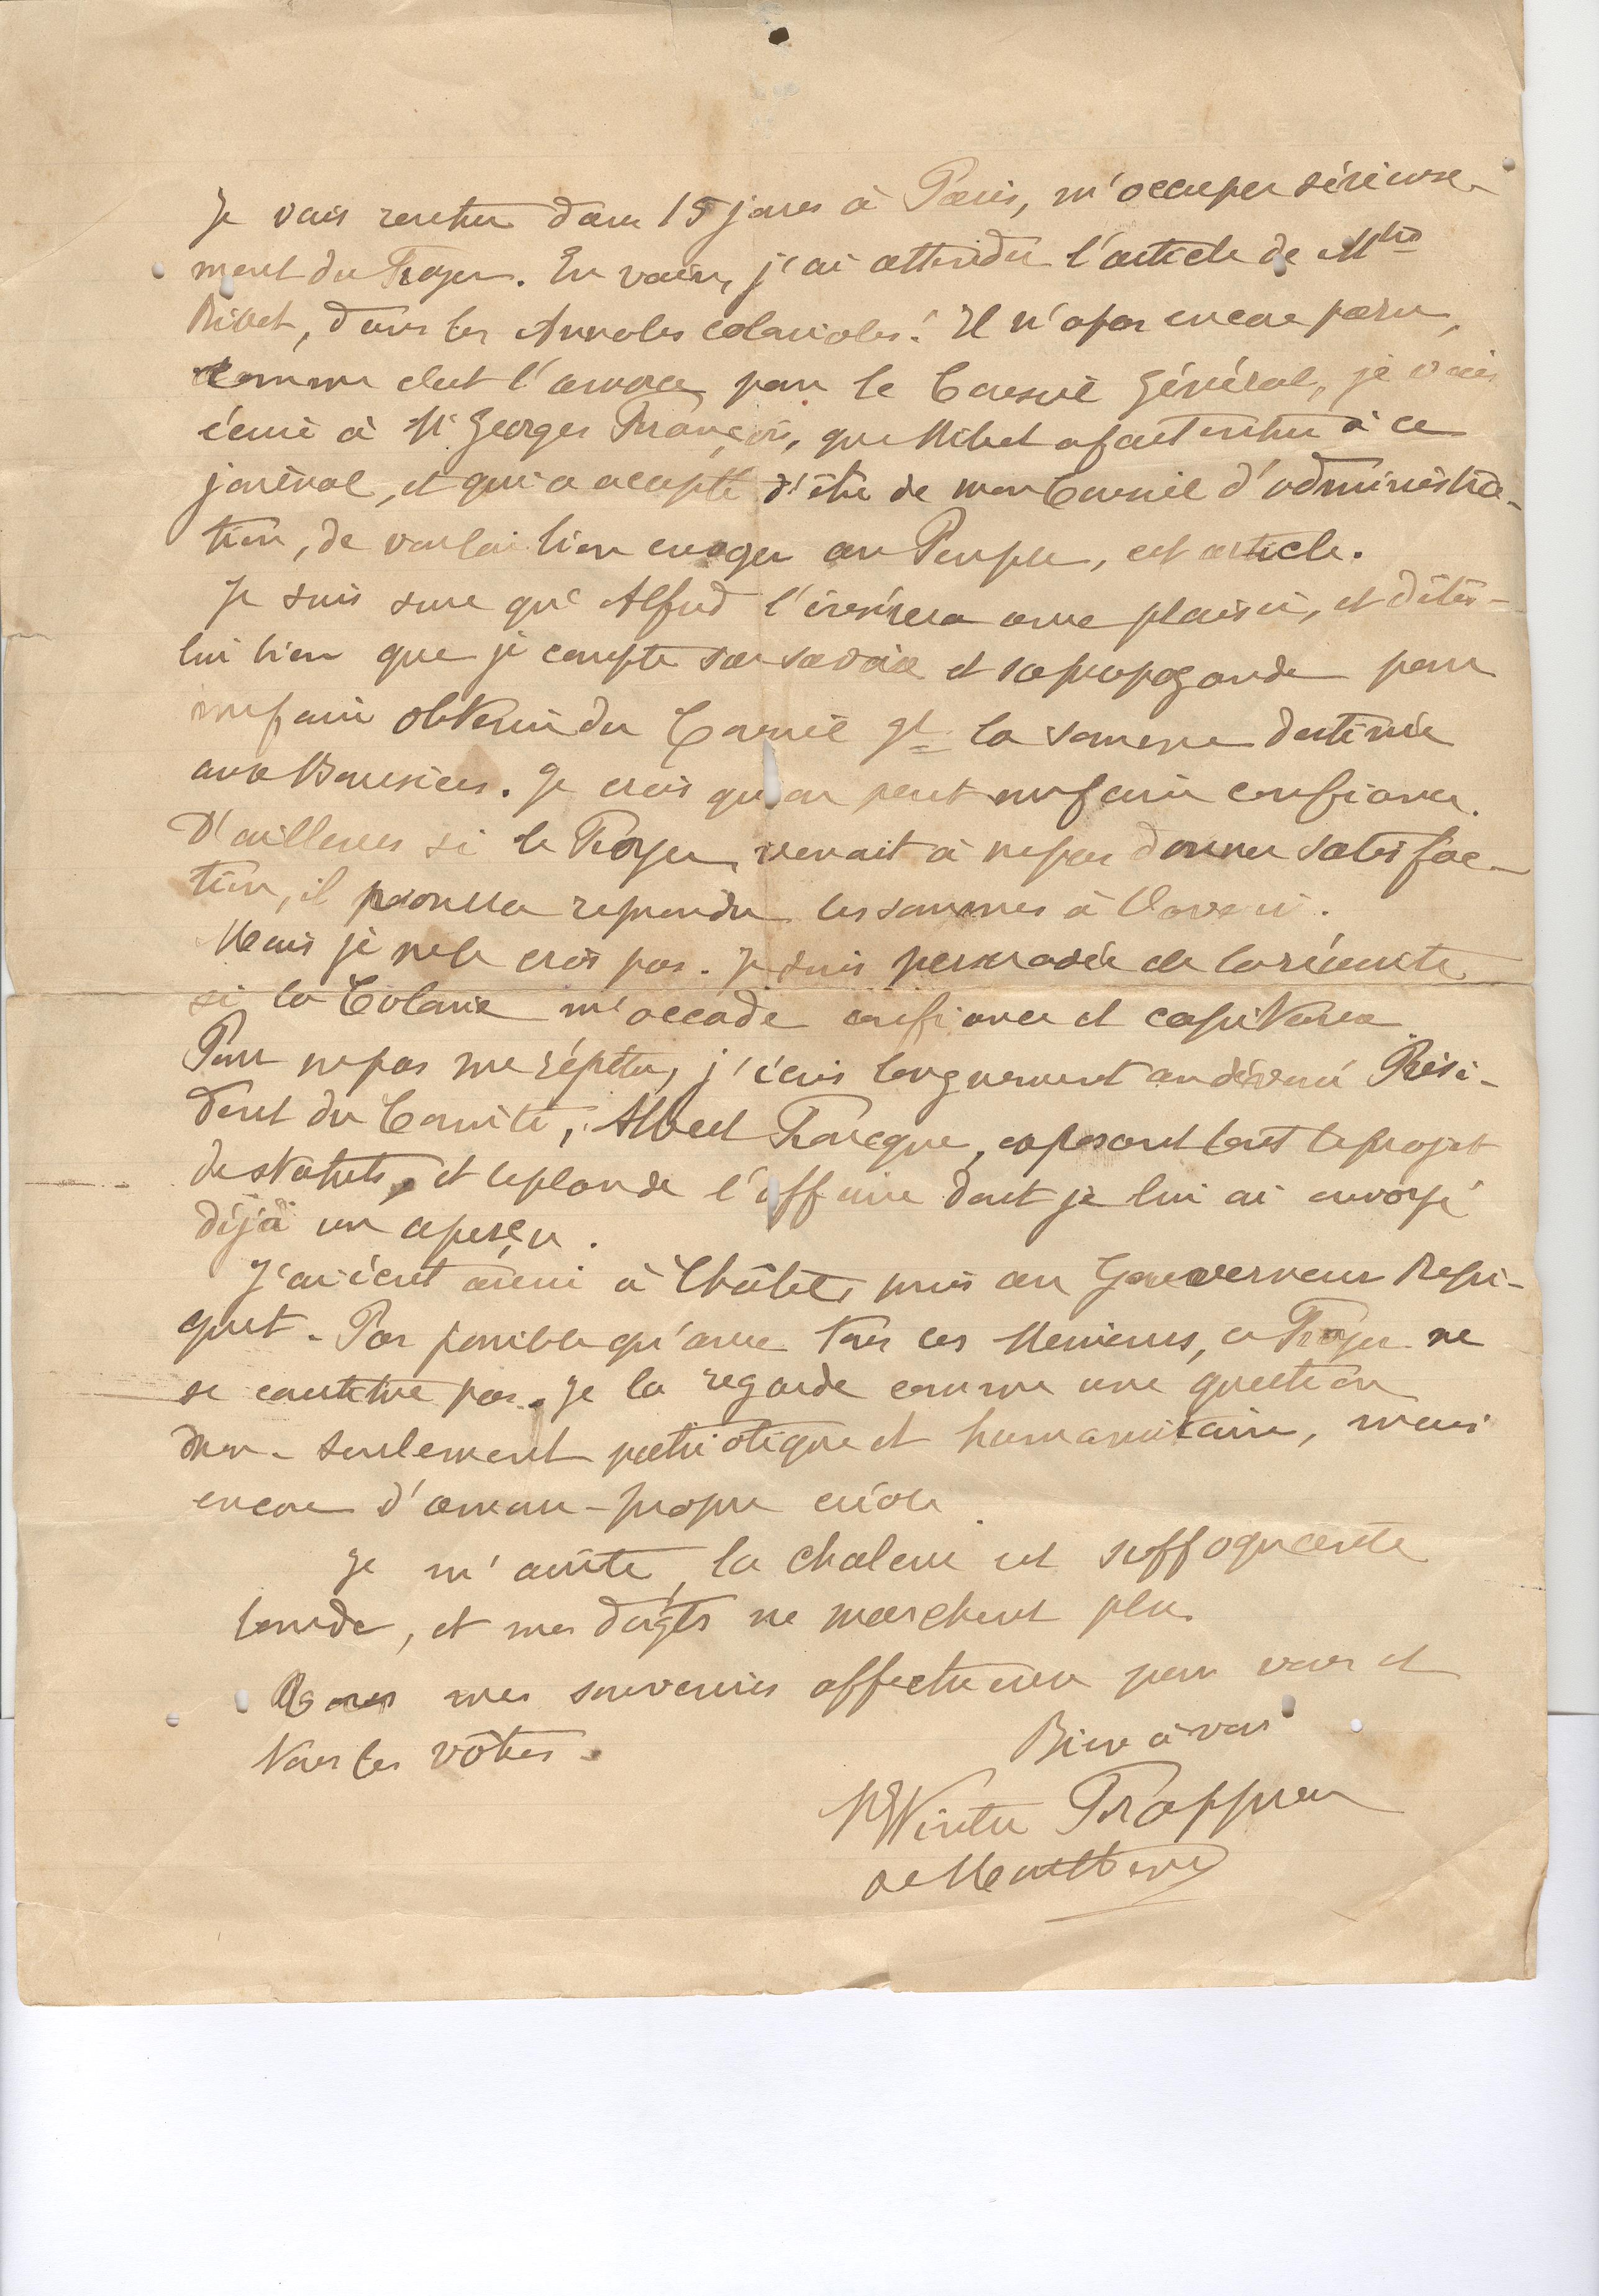 Je vais rentrer dans 15 jours à Paris, m'occuper sérieuse-
ment du Foyer. En vain, j'ai attendu l'article de Mlle
Ribet, dans les Annales coloniales. Il n'a pas encore paru,
comme elle l'annonce pour le Conseil Général, je vais
écrire à Mr Georges François, que Ribet a fait entrer à ce
journal, et qui a accepté d'être de mon Conseil d'administra-
tion, de vouloir bien envoyer au Peuple, cet article.
Je suis sure qu' Alfred l'insérera avec plaisir, et dites-
lui bien que je compte sur sa voix et sa propagande pour
me faire obtenir du Conseil gl la somme destinée
aux Bourses. Je crois qu'on peut me faire confiance.
D'ailleurs si le Foyer, venait à ne pas donner satisfac-
tion, il pourra reprendre les sommes à l'avenir.
Mais je ne le crois pas. Je suis persuadée de la réussite
si la Colonie m'accorde confiance et capitaux.
Pour ne pas me répéter, j'écris longuement au dévoué Prési-
dent du Comité, Albert, exposant tout le projet
de statuts, et le plan de l'affaire dont je lui ai envoyé
déjà un aperçu.
J'ai écrit aussi à Châtel, puis au Gouverneur Repi-
quet. Pas possible qu'avec tous ces Messieurs, ce Foyer ne
se constitue pas. Je la regarde comme une question
non-seulement patriotique et humanitaire, mais
encore d'amour-propre créole.
Je m'arrête, la chaleur est suffoquante
lourde, et mes doigts ne marchent plus.
mes souvenirs affectueux pour vous et
tous les vôtres.
Bien à vous
Winter Frappier
de Montbenoit